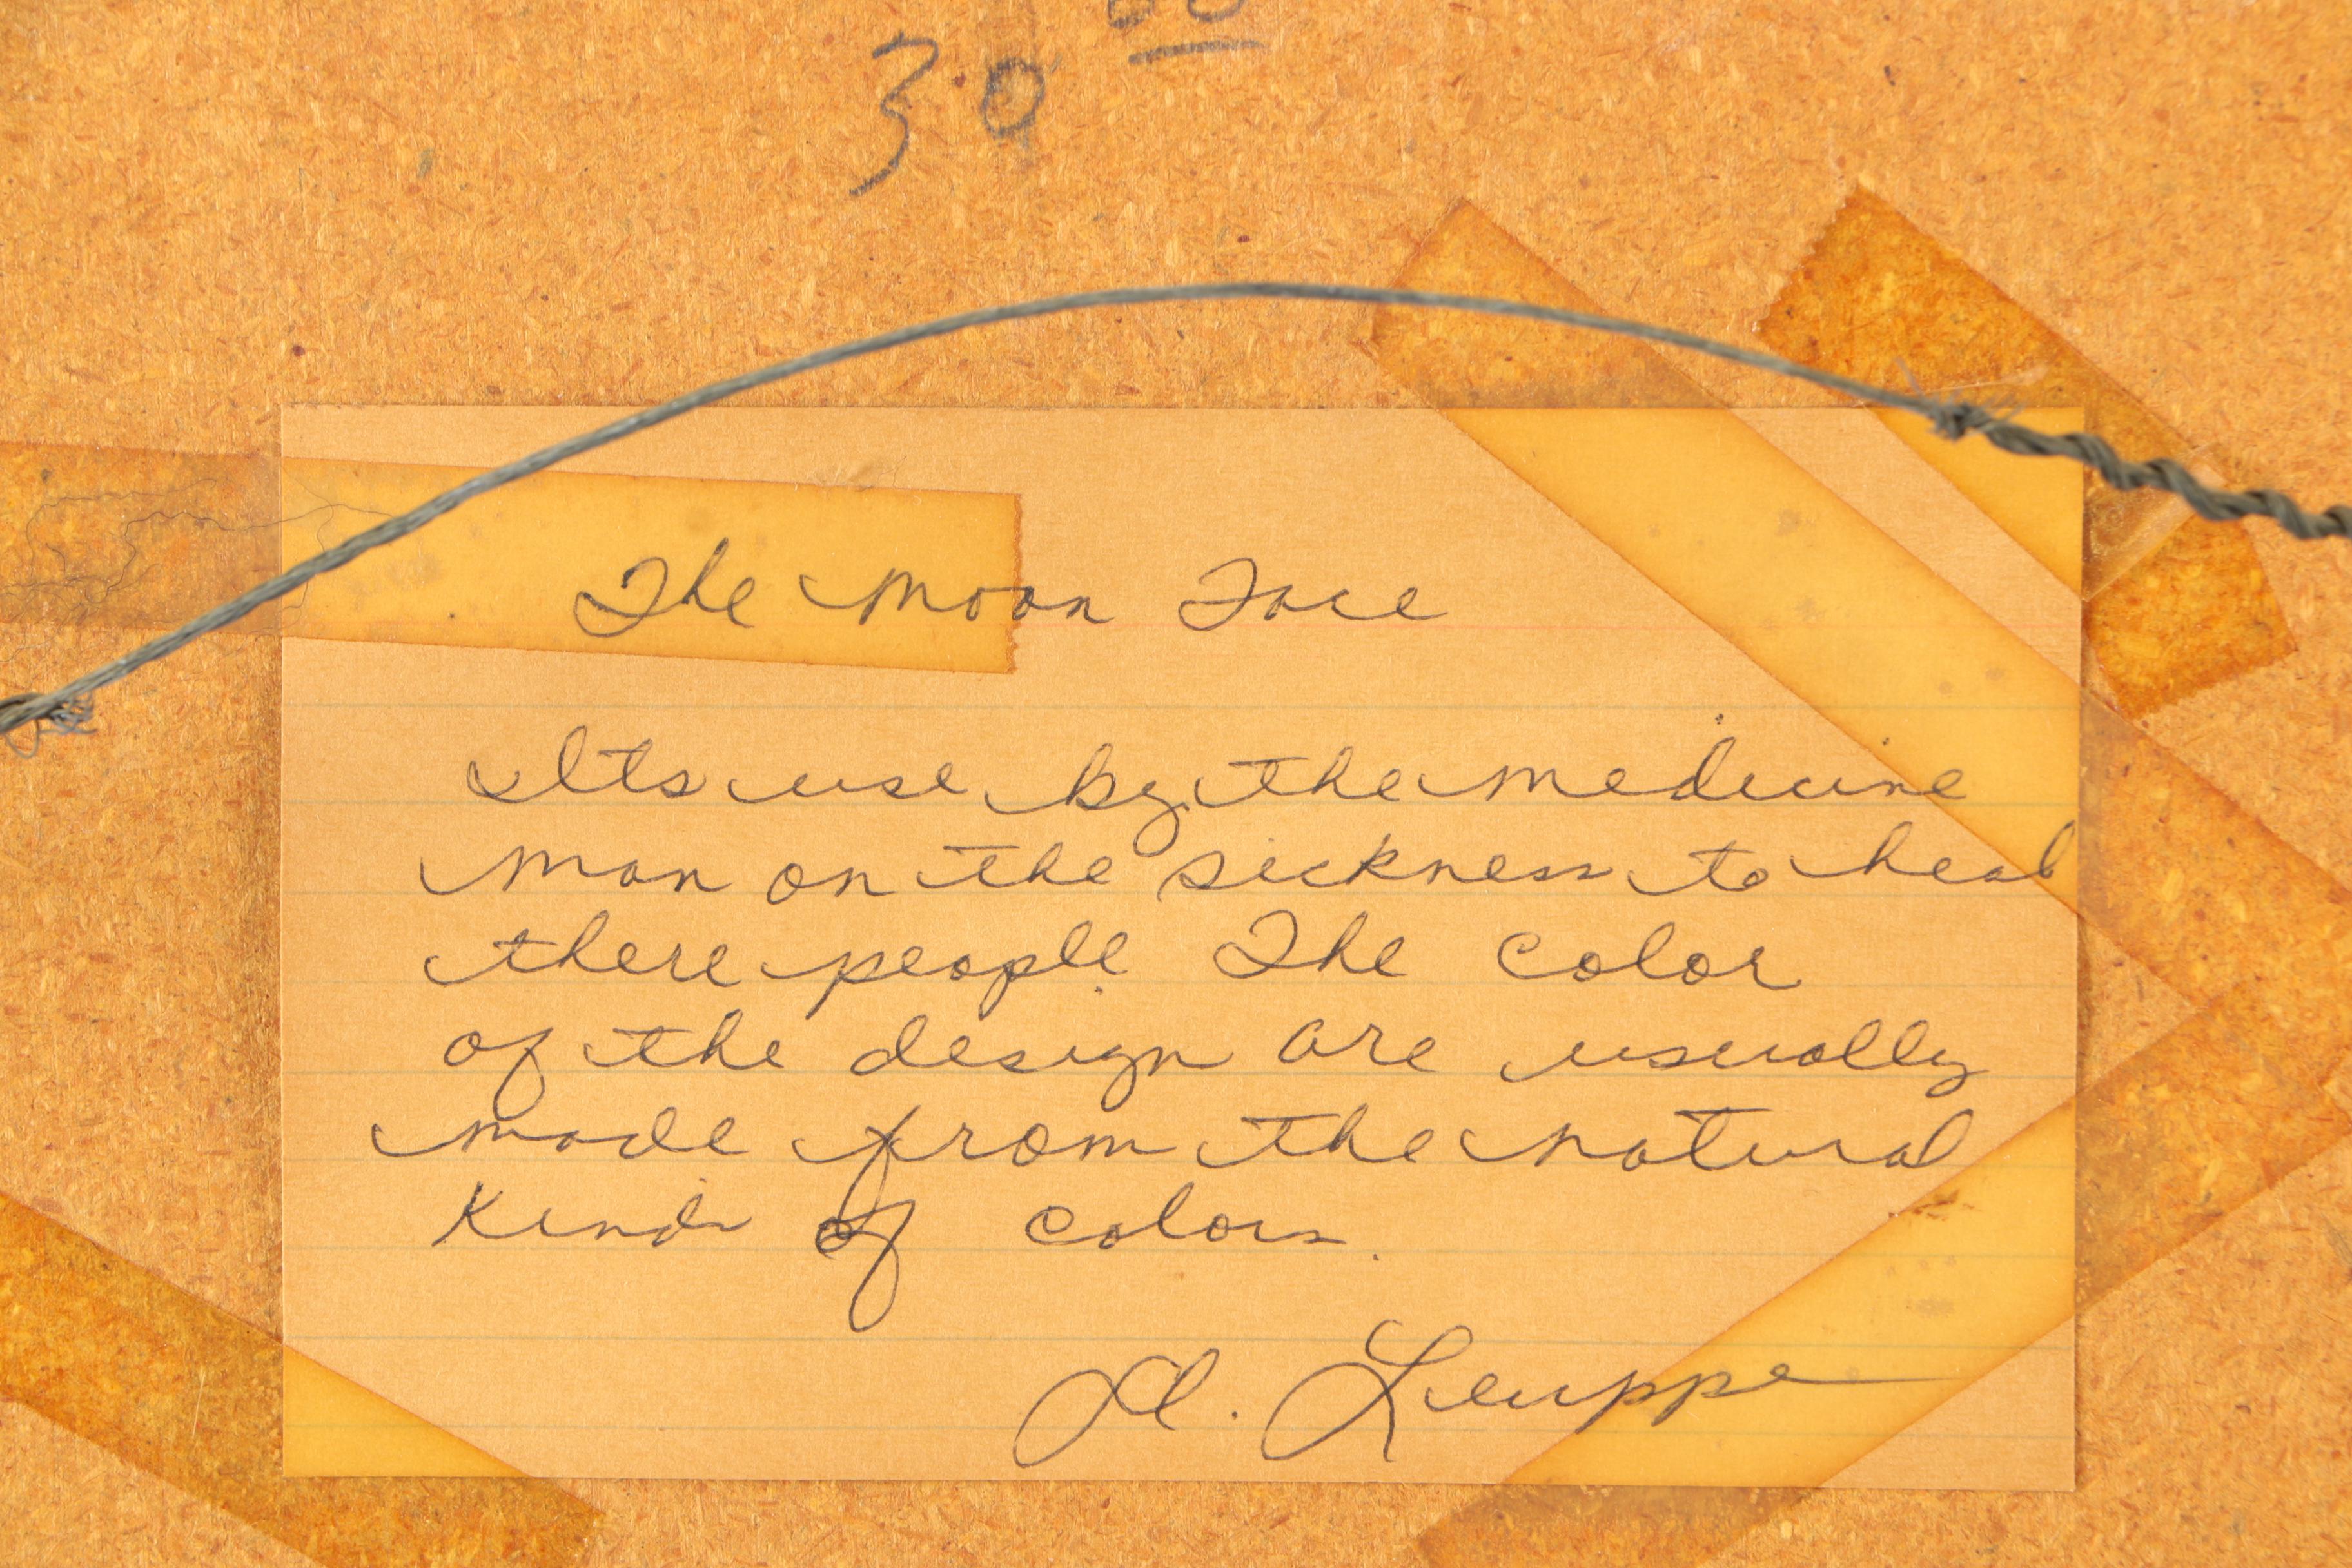 30 00
The Moon Face
Its use by the medicine
man on the sickness to heal
there people. The color
of the design are usually
made from the natural
Kinds of colors.
A. Leuppe